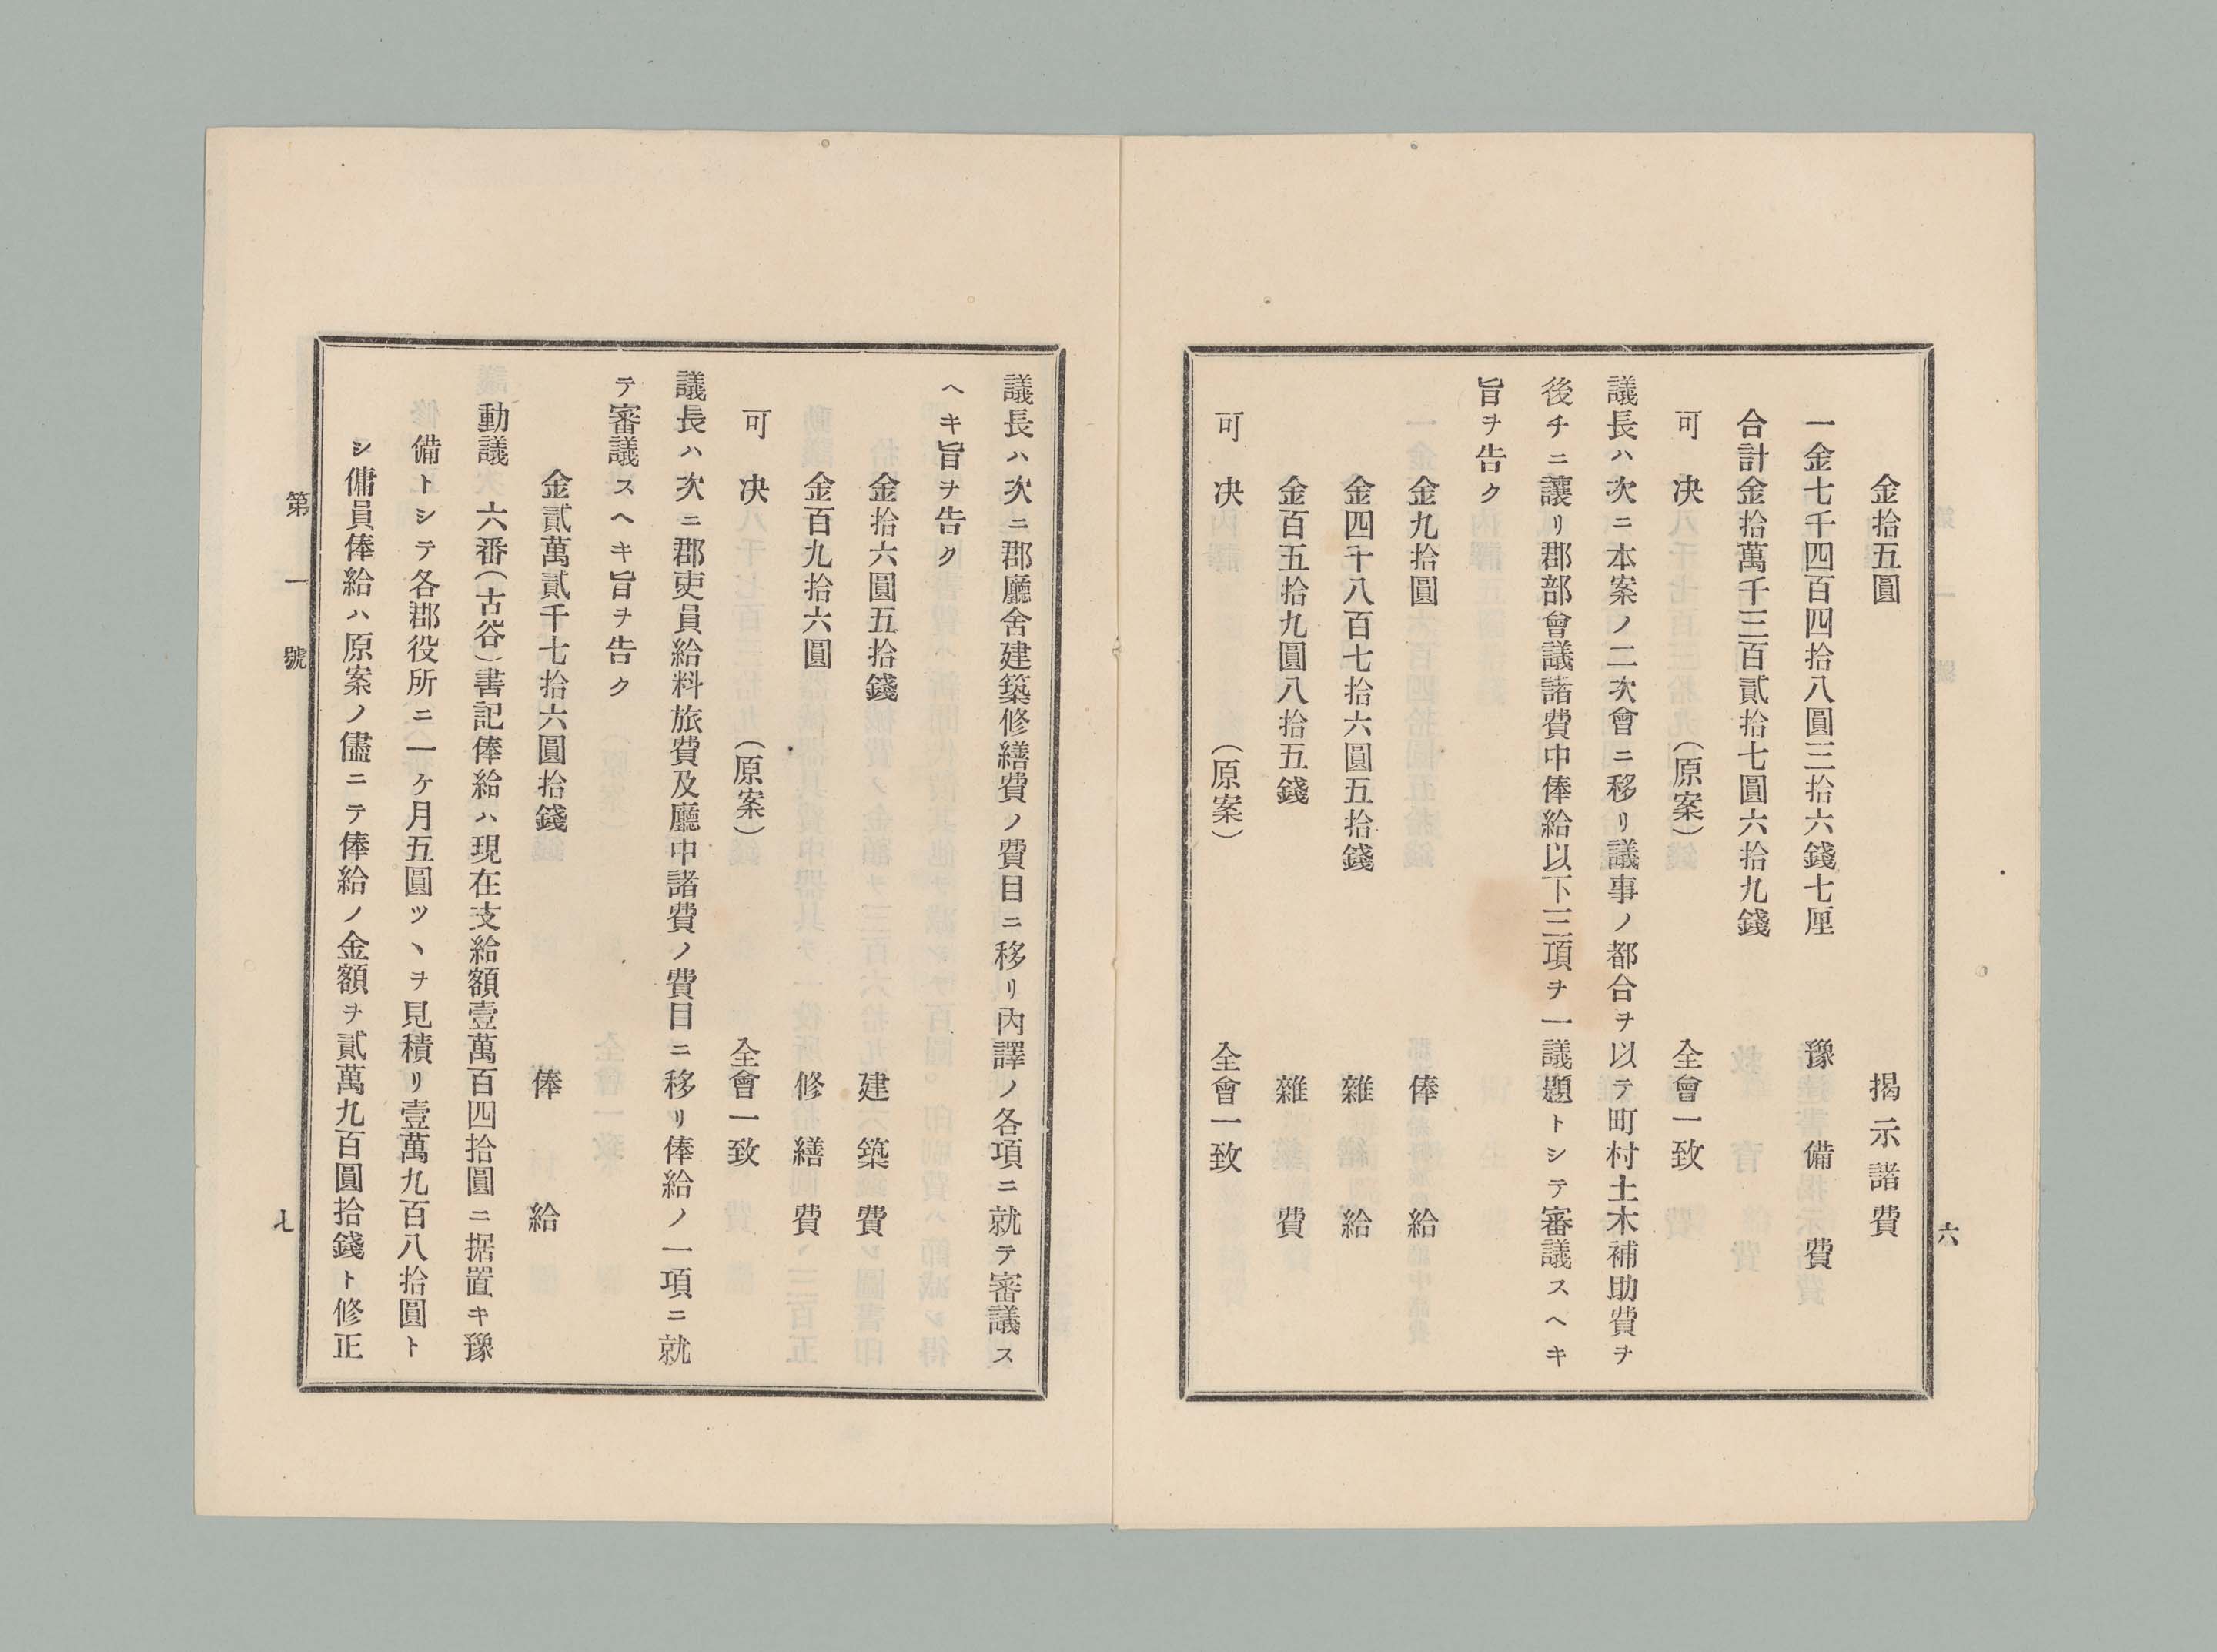 六
金拾五圓　揭示諸費
一金七千四百四拾八圓三拾六錢七厘　豫備費
合計金拾萬千三百貳拾七圓六拾九錢
可決　（原案）　全會一致
議長ハ次ニ本案ノ二次會ニ移リ議事ノ都合ヲ以テ町村土木補助費ヲ
後チニ讓リ郡部會議諸費中俸給以下三項ヲ一議題トシテ審議スヘキ
旨ヲ告ク
金九拾圓　俸給
金四千八百七拾六圓五拾錢　雜給
金百五拾九圓八拾五錢　雜費
可決　（原案）　全會一致
議長ハ次ニ郡廳舍建築修繕費ノ費目ニ移リ內譯ノ各項ニ就テ審議ス
ヘキ旨ヲ告ク
金拾六圓五拾錢　建築費
金百九拾六圓　修繕費
可決　（原案）　全會一致
議長ハ次ニ郡吏員給料旅費及廳中諸費ノ費目ニ移リ俸給ノ一項ニ就
テ審議スヘキ旨ヲ告ク
金貳萬貳千七拾六圓拾錢　俸給
動議　六番（古谷）書記俸給ハ現在支給額壹萬百四拾圓ニ据置キ豫
備トシテ各郡役所ニ一ケ月五圓ツヽヲ見積リ壹萬九百八拾圓ト
シ傭員俸給ハ原案ノ儘ニテ俸給ノ金額ヲ貳萬九百圓拾錢ト修正
第一號
七